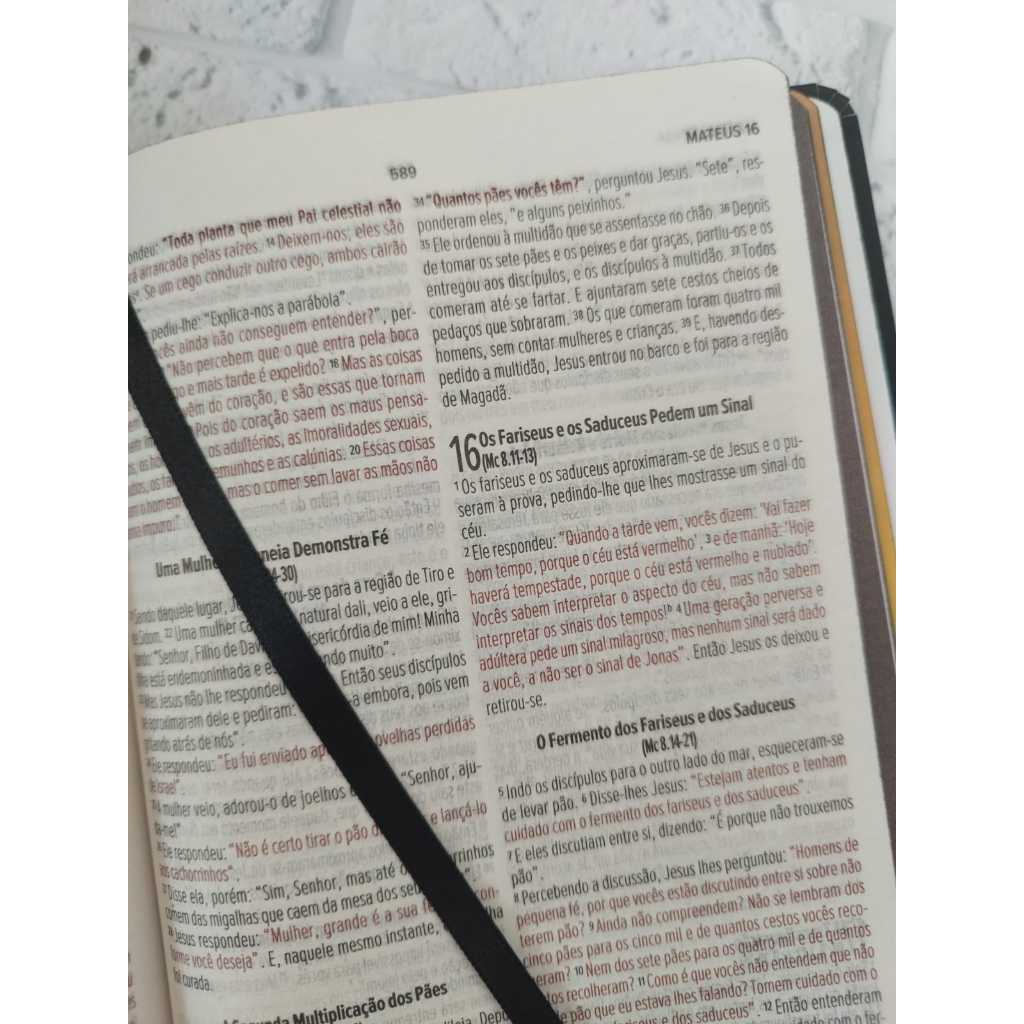 589
MATEUS 16
"Toda planta que meu Pai celestial não
arrancada pelas raízes. 14 Deixem-nos; eles são
Se um cego conduzir outro cego, ambos cairão
pediu-lhe: "Explica-nos a parábola".
ainda não conseguem entender?", per-
"Não percebem que o que entra pela boca
e mais tarde é expelido? 18 Mas as coisas
do coração, e são essas que tornam
Pois do coração saem os maus pensa-
os adultérios, as imoralidades sexuais,
e as calúnias. 20 Essas coisas
mas o comer sem lavar as mãos não
Uma Demonstra Fé
daquele lugar, para a região de Tiro e
Sidom. 22 Uma mulher natural dali, veio a ele, gri-
"Senhor, Filho de misericórdia de mim! Minha
está endemoninhada e muito".
Mas Jesus não lhe respondeu Então seus discípulos
aproximaram dele e pediram: embora, pois vem
atrás de nós".
Ele respondeu: "Eu fui enviado ovelhas perdidas
de Israel".
A mulher veio, adorou-o de joelhos "Senhor, aju-
da-me!"
Ele respondeu: "Não é certo tirar o pão e lançá-lo
aos cachorrinhos".
Disse ela, porém: "Sim, Senhor, mas até
comem das migalhas que caem da mesa dos
28 Jesus respondeu: "Mulher, grande é a sua con-
forme você deseja". E, naquele mesmo instante,
foi curada.
Multiplicação dos Pães
34 "Quantos pães vocês têm?", perguntou Jesus. "Sete", res-
ponderam eles, "e alguns peixinhos."
35 Ele ordenou à multidão que se assentasse no chão. 36 Depois
de tomar os sete pães e os peixes e dar graças, partiu-os e os
entregou aos discípulos, e os discípulos à multidão. 37 Todos
comeram até se fartar. E ajuntaram sete cestos cheios de
pedaços que sobraram. 38 Os que comeram foram quatro mil
homens, sem contar mulheres e crianças. 39 E, havendo des-
pedido a multidão, Jesus entrou no barco e foi para a região
de Magadã.
16 Os Fariseus e os Saduceus Pedem um Sinal
(Mc 8.11-13)
1 Os fariseus e os saduceus aproximaram-se de Jesus e o pu-
seram à prova, pedindo-lhe que lhes mostrasse um sinal do
céu.
2 Ele respondeu: "Quando a tarde vem, vocês dizem: 'Vai fazer
bom tempo, porque o céu está vermelho', 3 e de manhã: 'Hoje
haverá tempestade, porque o céu está vermelho e nublado'.
Vocês sabem interpretar o aspecto do céu, mas não sabem
interpretar os sinais dos tempos!b 4 Uma geração perversa e
adúltera pede um sinal milagroso, mas nenhum sinal será dado
a você, a não ser o sinal de Jonas". Então Jesus os deixou e
retirou-se.
O Fermento dos Fariseus e dos Saduceus
(Mc 8.14-21)
5 Indo os discípulos para o outro lado do mar, esqueceram-se
de levar pão. 6 Disse-lhes Jesus: "Estejam atentos e tenham
cuidado com o fermento dos fariseus e dos saduceus".
7 E eles discutiam entre si, dizendo: "É porque não trouxemos
pão".
8 Percebendo a discussão, Jesus lhes perguntou: "Homens de
pequena fé, por que vocês estão discutindo entre si sobre não
terem pão? 9 Ainda não compreendem? Não se lembram dos
cinco pães para os cinco mil e de quantos cestos vocês reco-
lheram? 10 Nem dos sete pães para os quatro mil e de quantos
recolheram? 11 Como é que vocês não entendem que não
de pão que eu estava lhes falando? Tomem cuidado com o
dos fariseus e dos saduceus". 12 Então entenderam
cuidado com o fer-